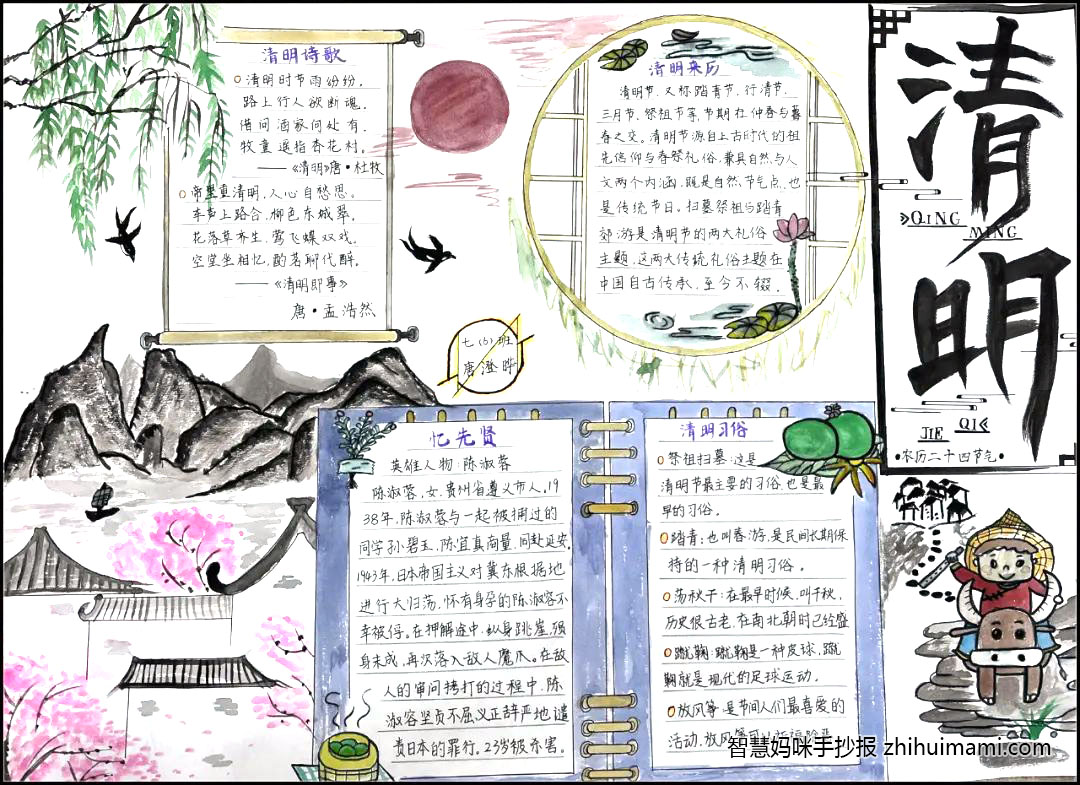 清明诗歌
清明时节雨纷纷,
路上行人欲断魂,
借问酒家何处有,
牧童遥指杏花村,
——《清明》唐·杜牧
帝里重清明,人心自愁思。
车声上路合,柳色东城翠,
花落草齐生,莺飞蝶双戏。
空堂坐相忆,酌茗聊代醉。
——《清明即事》
唐·孟浩然
七(6)班
唐澄晔
清明来历
清明节,又称踏青节,行清节,
三月节,祭祖节等,节期在仲春与暮
春之交。清明节源自上古时代的祖
先信仰与春祭礼俗,兼具自然与人
文两个内涵,既是自然节气点,也
是传统节日。扫墓祭祖与踏青
郊游是清明节的两大礼俗
主题,这两大传统礼俗主题在
中国自古传承,至今不辍。
清明
QING
MING
JIE
QI
·农历二十四节气·
忆先贤
英雄人物:陈淑蓉
陈淑蓉,女,贵州省遵义市人,19
38年,陈淑蓉与一起被捕过的
同学孙碧玉,陈宜真商量,同赴延安,
1943年,日本帝国主义对冀东根据地
进行大归荡,怀有身孕的陈淑容不
幸被俘。在押解途中,纵身跳崖,殒
身未成,再次落入敌人魔爪。在敌
人的审问拷打的过程中,陈
淑容坚贞不屈义正辞严地谴
责日本的罪行。23岁被杀害。
清明习俗
祭祖扫墓:这是
清明节最主要的习俗,也是最
早的习俗。
踏青:也叫春游,是民间长期保
持的一种清明习俗。
荡秋千:在最早时候,叫千秋,
历史很古老,在南北朝时已经盛
蹴鞠:蹴鞠是一种皮球,蹴
鞠就是现代的足球运动。
放风筝:是节间人们最喜爱的
活动,放风筝可以祈福
智慧妈咪手抄报 zhihuimami.com